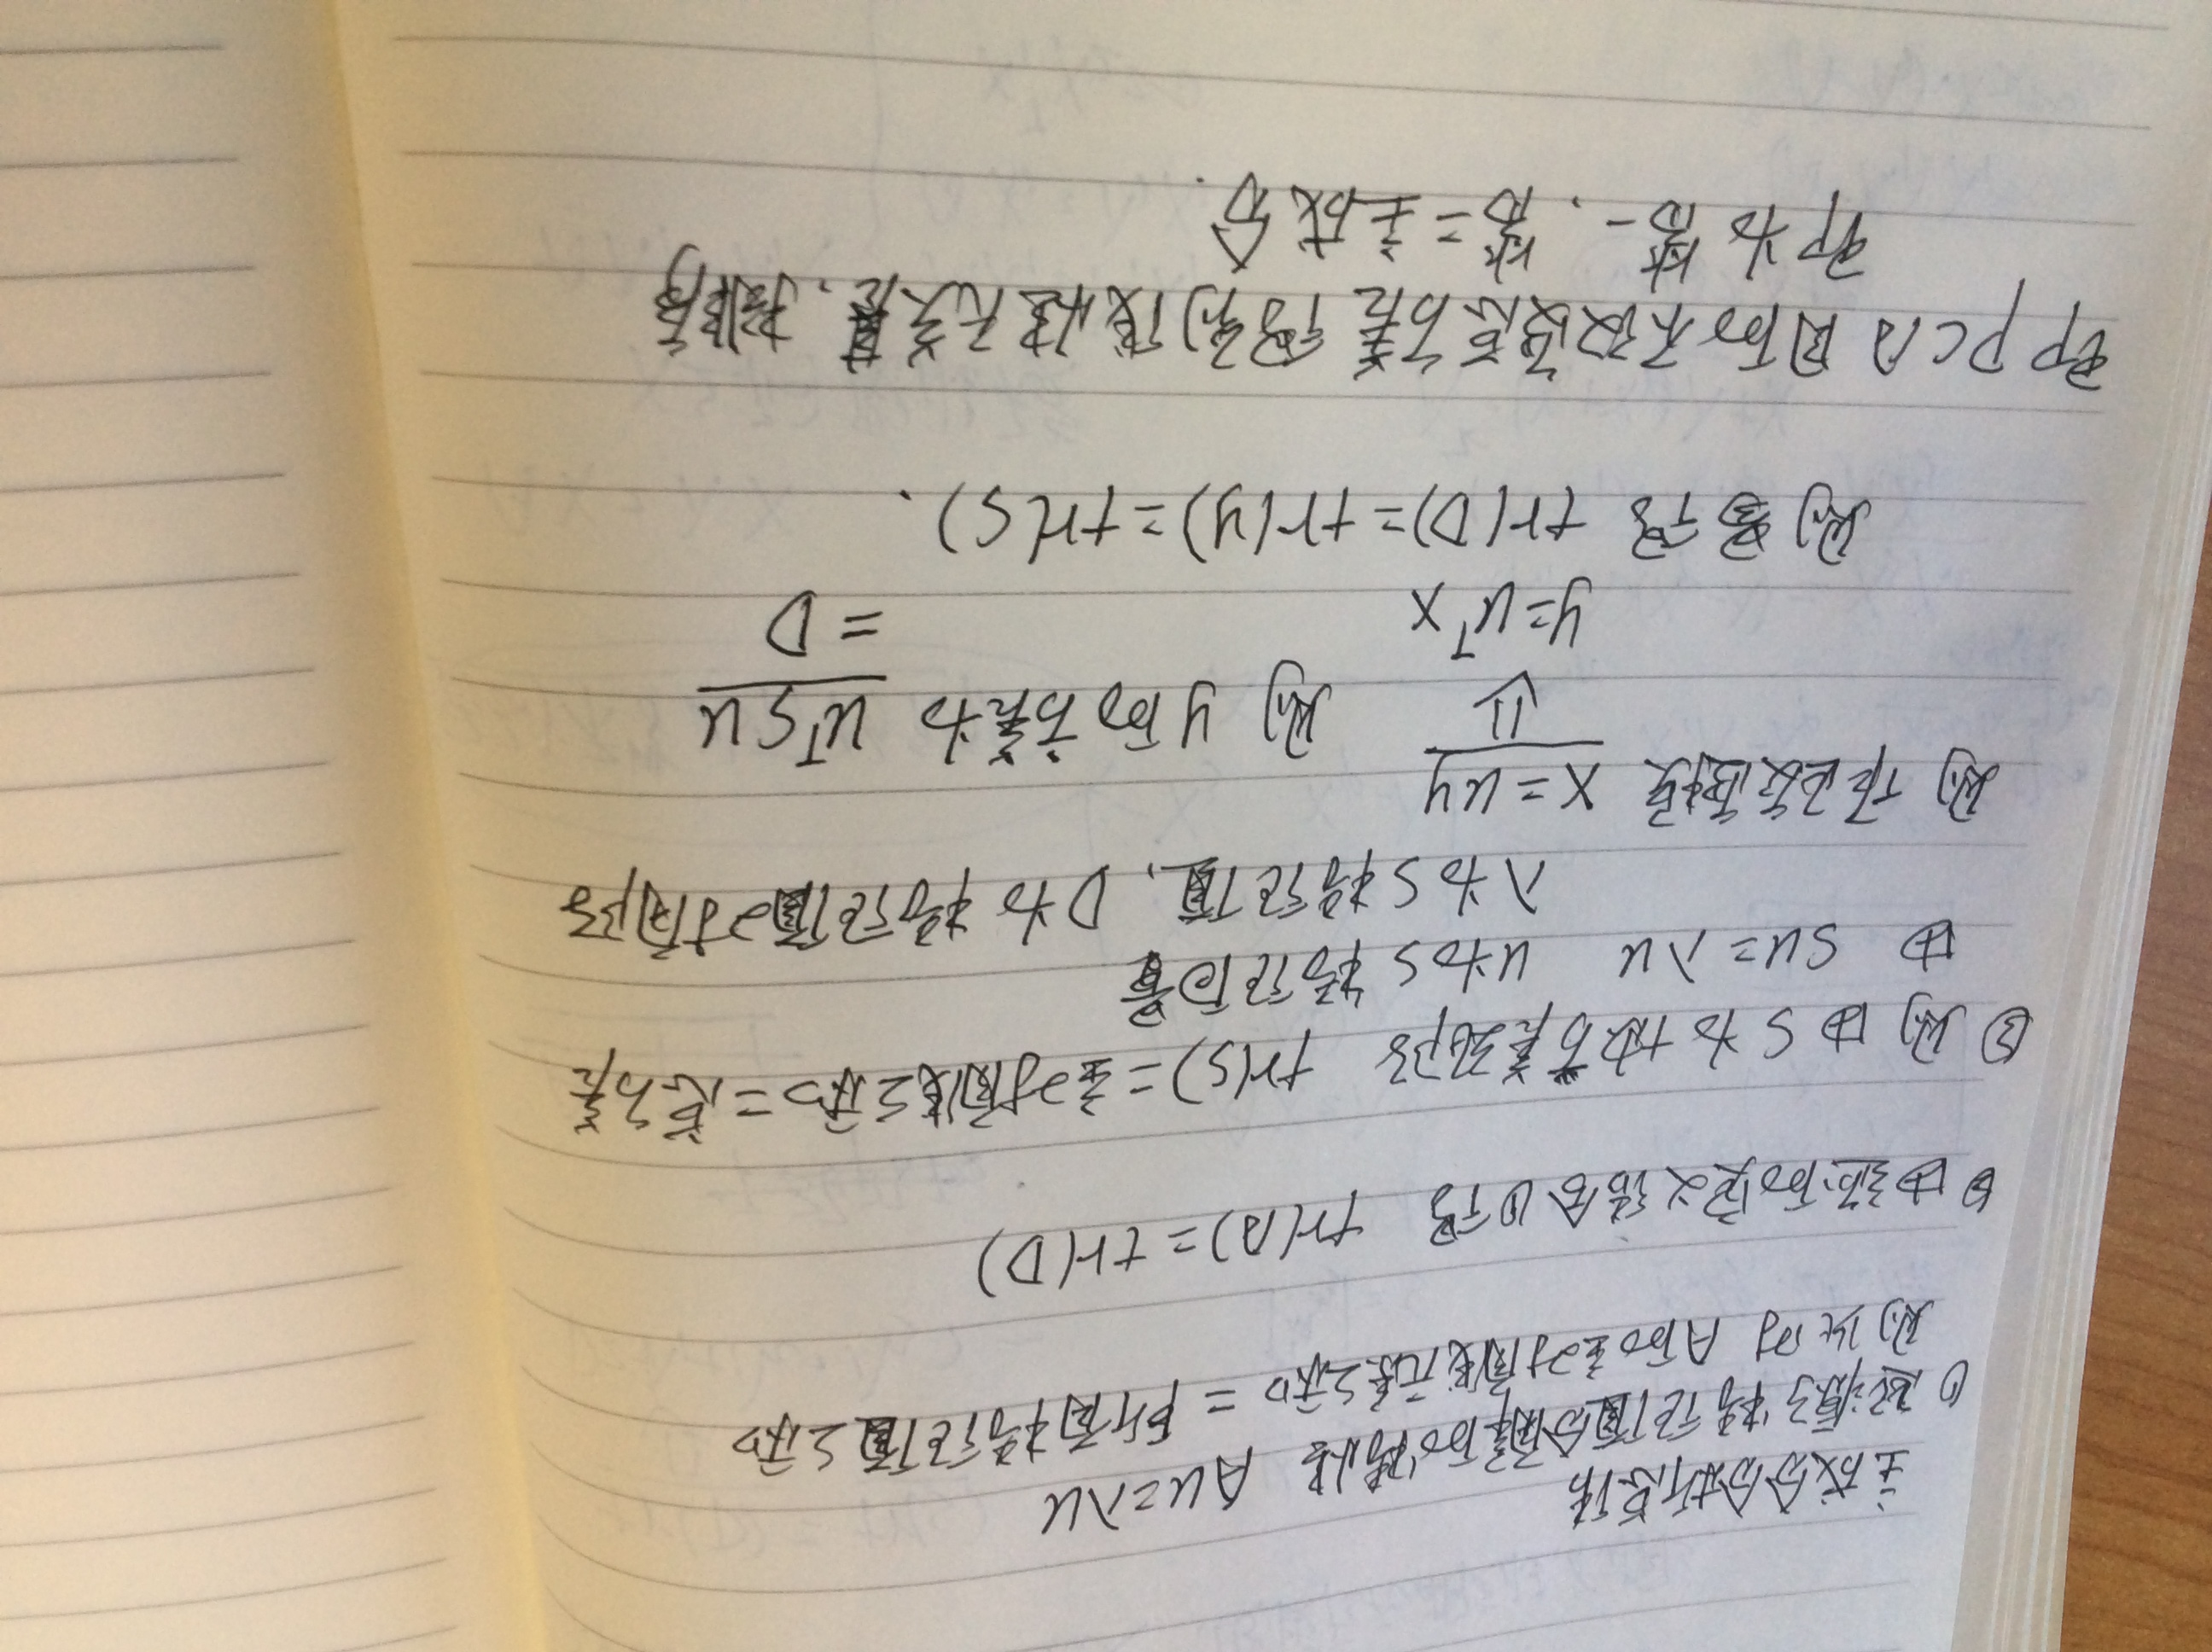 主成分分析总结
① 起源于特征值分解的特性 Au=λu
则此时 A的主对角线元素之和 = 所有特征值之和
② 由迹的定义结合①得 tr(A)=tr(D)
③ 则由S为协方差矩阵 tr(S)=主对角线之和=总方差
由 Su=λu u为S特征向量
λ为S特征值、D为特征值对角阵
则作正交变换 x=uy
⇓ 则 y的方差为 uᵀSu
y=uᵀx = D
则易得 tr(D)=tr(y)=tr(S).
即PCA目的不改变总方差得到线性无关基、排序
即为第一、第二主成分.